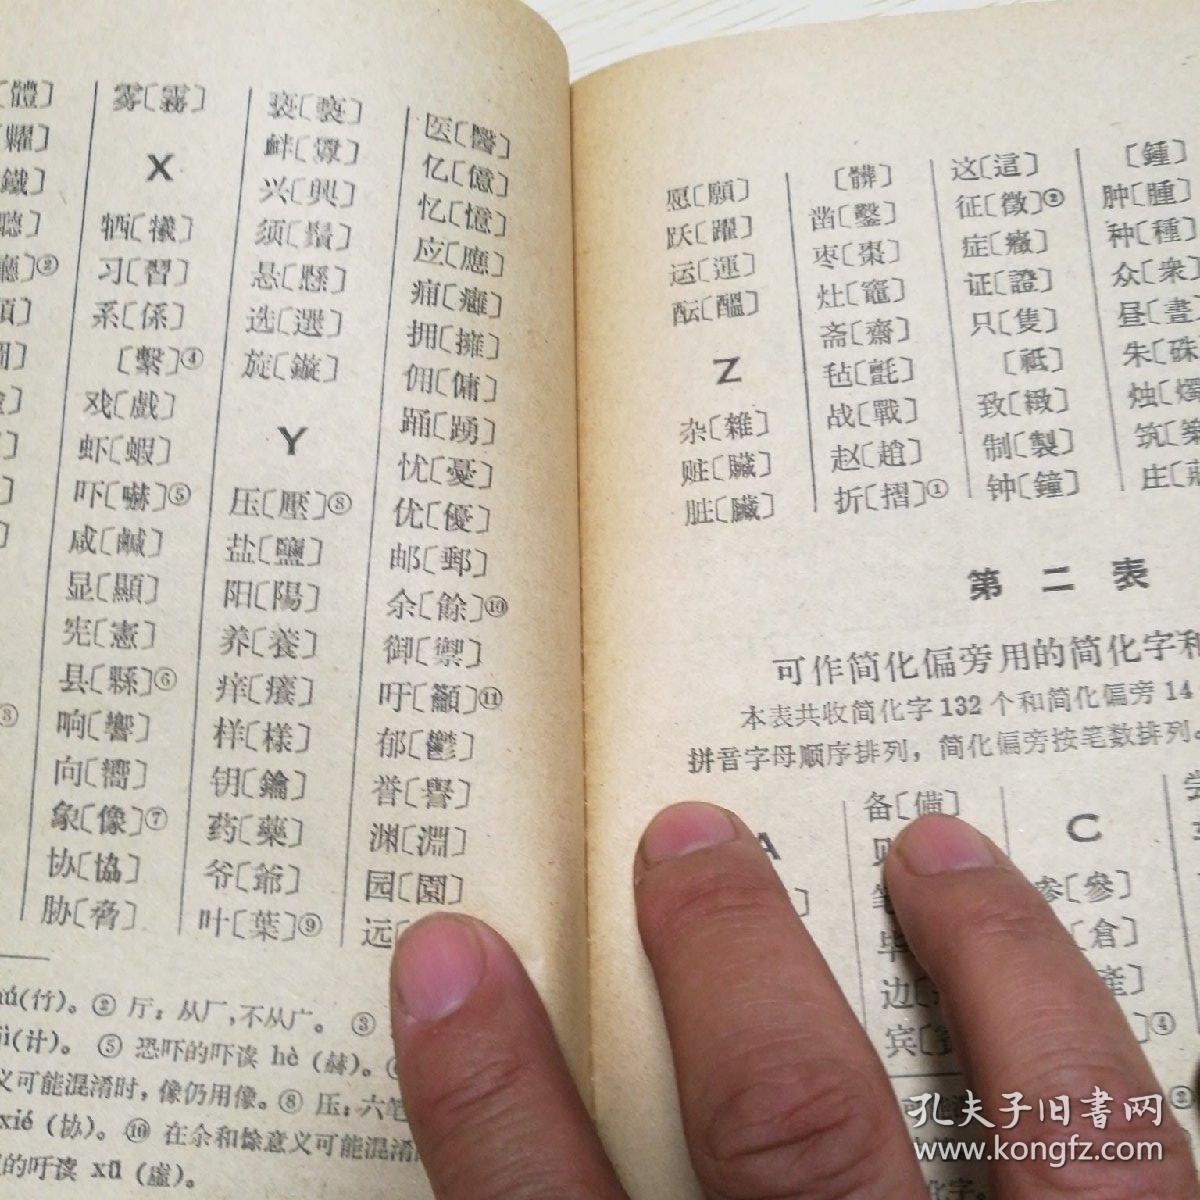 〔體〕
〔糶〕
〔鐵〕
〔聽〕
〔廳〕②
雾〔霧〕
X
牺〔犧〕
习〔習〕
系〔係〕
〔繫〕④
戏〔戲〕
虾〔蝦〕
吓〔嚇〕⑤
咸〔鹹〕
显〔顯〕
宪〔憲〕
县〔縣〕⑥
响〔響〕
向〔嚮〕
象〔像〕⑦
协〔協〕
胁〔脅〕
亵〔褻〕
衅〔釁〕
兴〔興〕
须〔鬚〕
悬〔懸〕
选〔選〕
旋〔鏇〕
Y
压〔壓〕⑧
盐〔鹽〕
阳〔陽〕
养〔養〕
痒〔癢〕
样〔樣〕
钥〔鑰〕
药〔藥〕
爷〔爺〕
叶〔葉〕⑨
医〔醫〕
亿〔億〕
忆〔憶〕
应〔應〕
痈〔癰〕
拥〔擁〕
佣〔傭〕
踊〔踴〕
忧〔憂〕
优〔優〕
邮〔郵〕
余〔餘〕⑩
御〔禦〕
吁〔籲〕⑪
郁〔鬱〕
誉〔譽〕
渊〔淵〕
园〔園〕
远〔
ú(竹)。 ② 厅：从厂，不从广。 ③
jì(计)。 ⑤ 恐吓的吓读 hè (赫)。
义可能混淆时，像仍用像。⑧ 压：六笔
xié (协)。 ⑩ 在余和馀意义可能混淆
的吁读 xū (虚)。
愿〔願〕
跃〔躍〕
运〔運〕
酝〔醖〕
Z
杂〔雜〕
赃〔贓〕
脏〔臟〕
〔髒〕
凿〔鑿〕
枣〔棗〕
灶〔竈〕
斋〔齋〕
毡〔氈〕
战〔戰〕
赵〔趙〕
折〔摺〕①
这〔這〕
征〔徵〕②
症〔癥〕
证〔證〕
只〔隻〕
〔祇〕
致〔緻〕
制〔製〕
钟〔鐘〕
〔鍾〕
肿〔腫〕
种〔種〕
众〔衆〕
昼〔晝〕
朱〔硃〕
烛〔燭
筑〔築
庄〔莊
第二表
可作简化偏旁用的简化字和
本表共收简化字132个和简化偏旁14
拼音字母顺序排列，简化偏旁按笔数排列。
A
备〔備〕
边〔
宾〔
C
参〔參〕
〔倉〕
〔産〕
〕④
孔夫子旧书网
www.kongfz.com